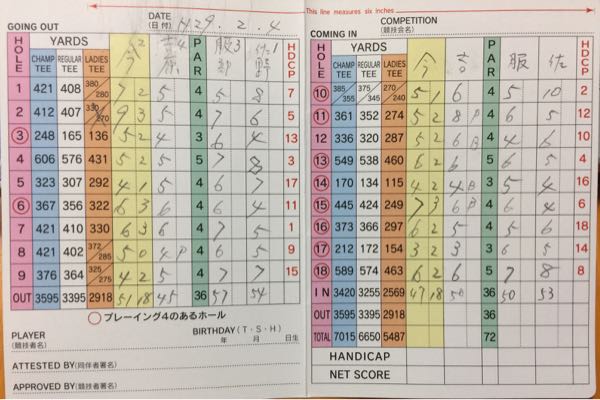 This line measures six inches
GOING OUT DATE (日付) H29. 2. 4
HOLE YARDS PAR HDCP
CHAMP TEE REGULAR TEE LADIES TEE 今 2 4 服部 3 佐野 1
1 421 408 380/280 7 2 5 4 5 8 7
2 412 407 330/270 9 3 5 4 7 6 5
3 248 165 136 5 2 4 3 6 4 13
4 606 576 431 5 2 5 5 7 8 3
5 323 307 292 4 1 5 4 6 7 17
6 367 356 322 6 3 6 4 6 4 11
7 421 410 330 6 3 6 4 7 5 1
8 421 402 372/285 5 0 4 P 4 6 5 9
9 376 364 325/275 4 2 5 4 7 7 15
OUT 3595 3395 2918 51 18 45 36 57 54
○プレーイング4のあるホール
PLAYER (競技者名) BIRTHDAY (T・S・H) 年 月 日生
ATTESTED BY (同伴者署名)
APPROVED BY (競技者署名)
COMPETITION (競技会名)
COMING IN
HOLE YARDS PAR HDCP
CHAMP TEE REGULAR TEE LADIES TEE 今 吉 服 佐
10 385/355 375/345 270/240 5 1 6 4 5 10 2
11 361 352 274 5 2 8 P 4 6 5 12
12 336 320 287 5 2 6 B 4 4 6 10
13 549 538 460 6 2 6 5 6 5 4
14 170 134 115 4 2 4 B 3 5 4 16
15 445 424 249 7 3 6 B 4 4 6 6
16 373 366 297 6 2 5 4 5 6 18
17 212 172 154 3 2 3 3 6 5 14
18 589 574 463 6 2 6 5 7 8 8
IN 3420 3255 2569 47 18 50 36 50 53
OUT 3595 3395 2918 36
TOTAL 7015 6650 5487 72
HANDICAP
NET SCORE